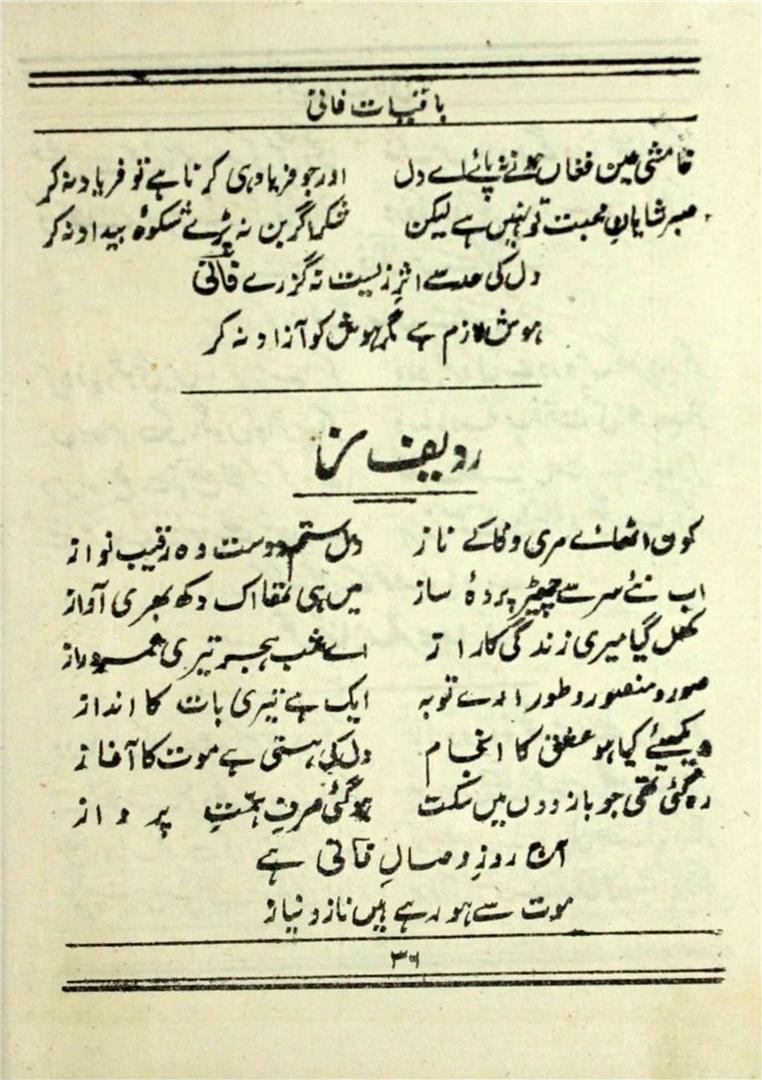 باقیات فانی
خامشی عین فغاں ہونے نہ پائے اے دل اور جو فریاد ہی کرنا ہے تو فریاد نہ کر
صبر شایانِ محبت تو نہیں ہے لیکن شکر اگر بن نہ پڑے شکوۂ بیداد نہ کر
دل کی حد سے اثرِ زیست نہ گزرے فانیؔ
ہوش لازم ہے مگر ہوش کو آزاد نہ کر
ردیف ز
کون اٹھائے مری وفا کے ناز دل ستم دوست وہ رقیب نواز
اب نئے سر سے چھیڑ پردۂ ساز میں ہی تھا اک دکھ بھری آواز
کھل گیا میری زندگی کا راز اے شبِ ہجر تیری عمر دراز
صور و منصور و طور ارے توبہ ایک ہے تیری بات کا انداز
دیکھئے کیا ہو عشق کا انجام دل کی ہستی ہے موت کا آغاز
رہ گئی تھی جو بازوؤں میں سکت ہو گئی صرفِ ہمّتِ پرواز
آج روزِ وصالِ فانی ہے
موت سے ہو رہے ہیں ناز و نیاز
۳۶